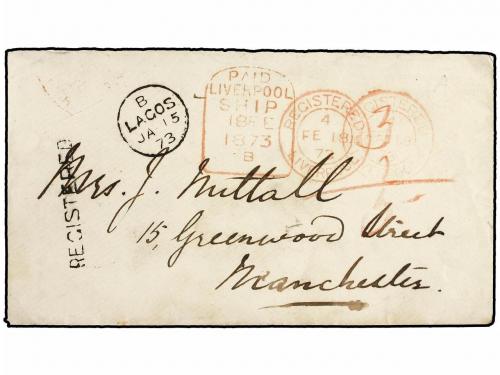 B
LAGOS
JA 15
73
PAID
LIVERPOOL
SHIP
18 FE
1873
B
REGISTERED
4
FE 18
73
REGISTERED
Mrs. J. Nuttall
15, Greenwood Street
Manchester.